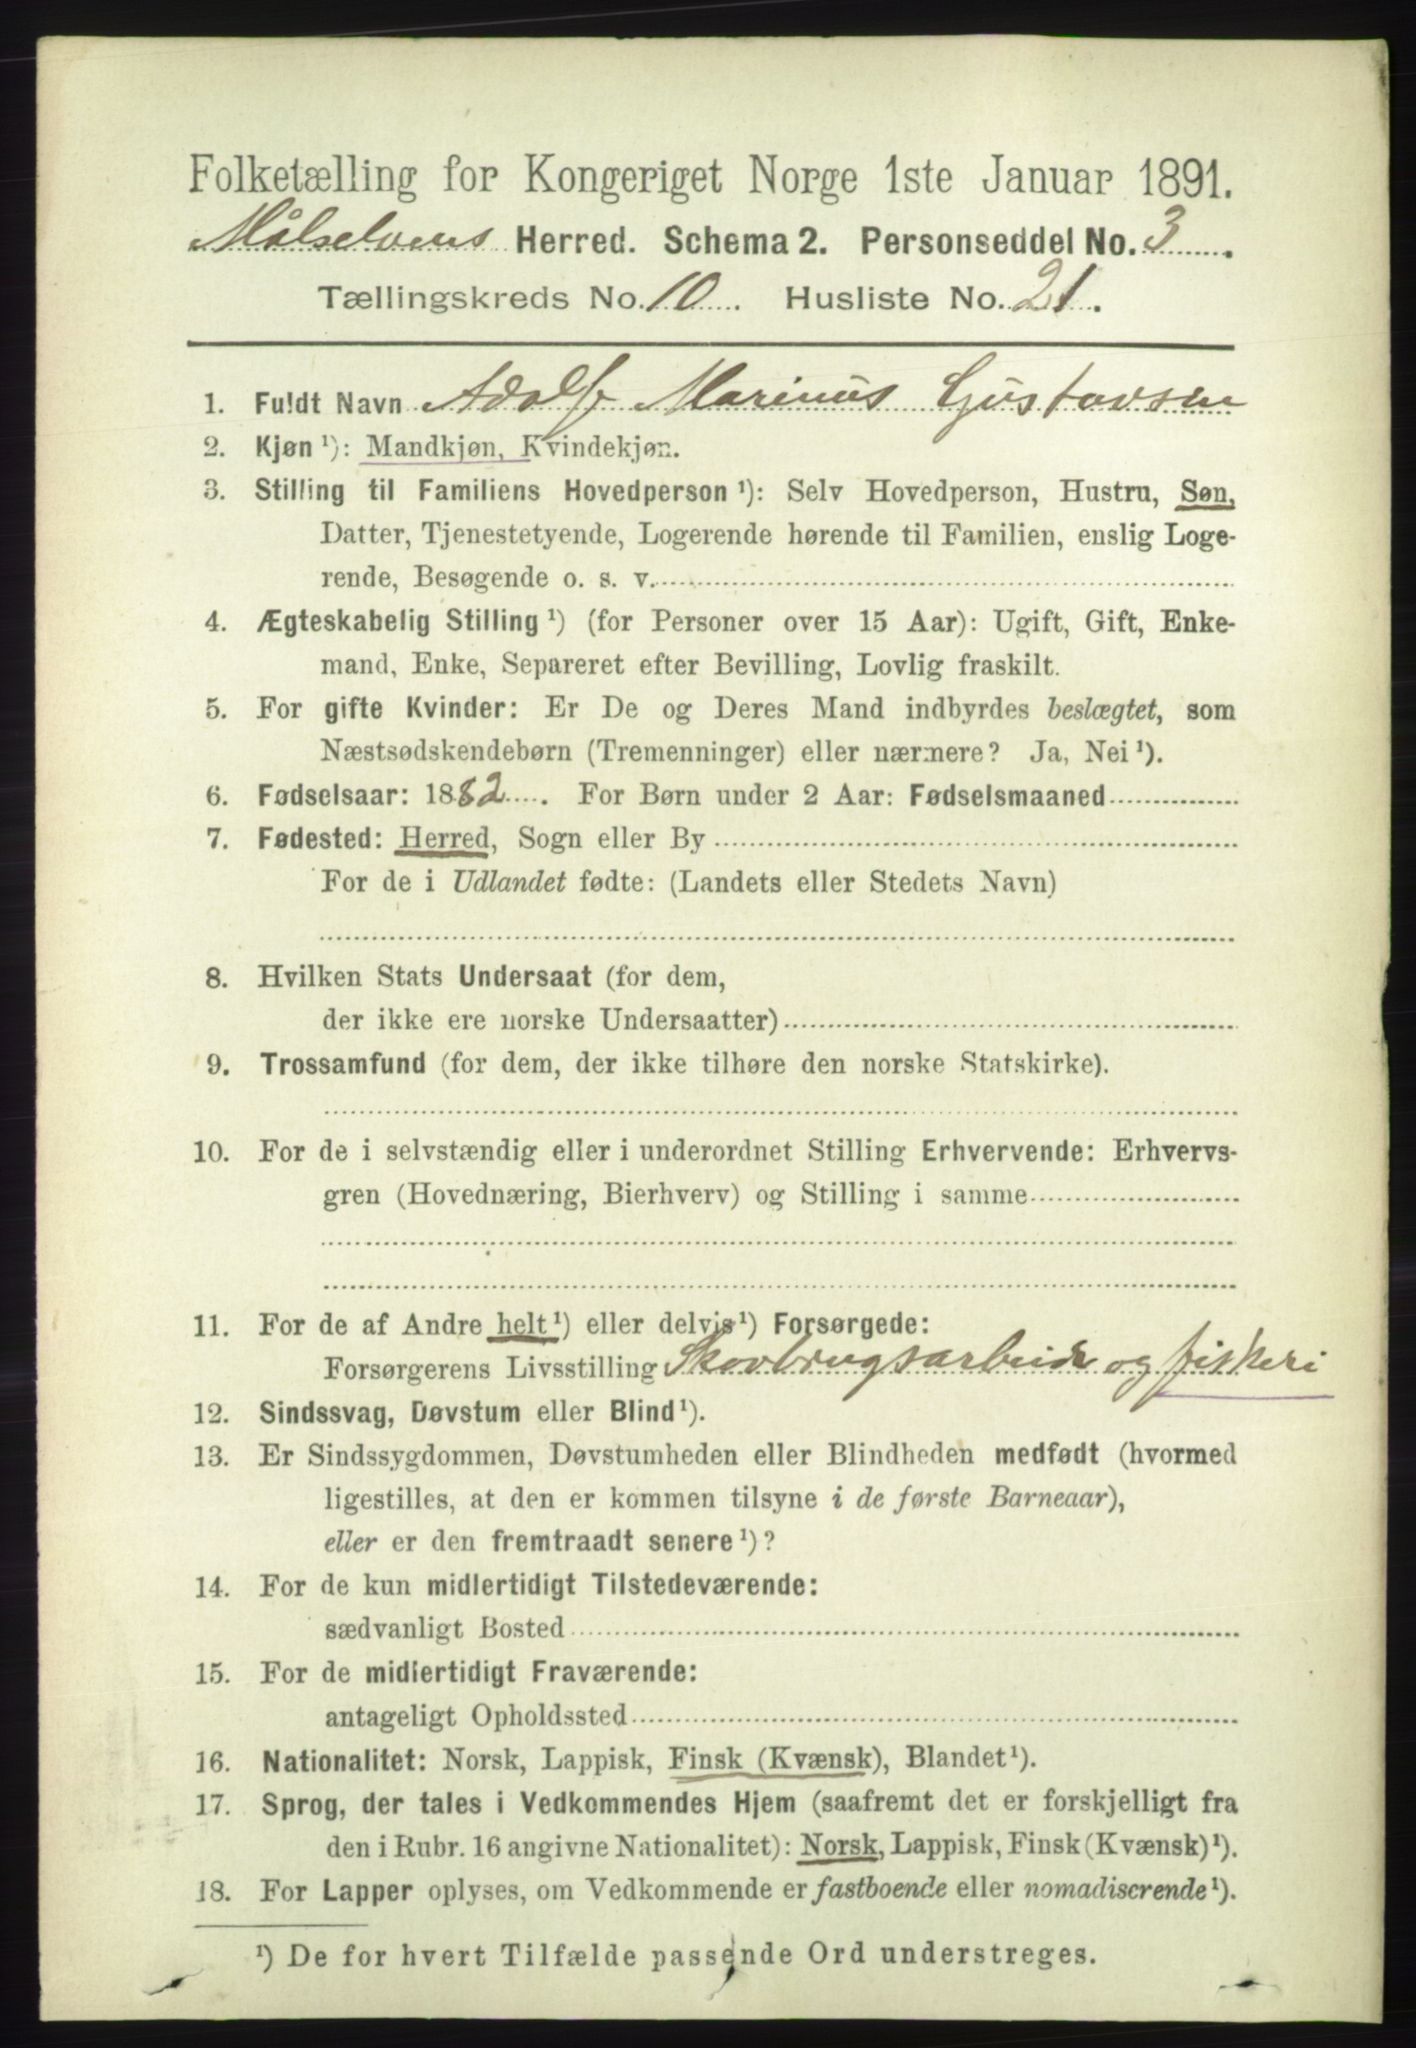 Folketælling for Kongeriget Norge 1ste Januar 1891.
Målselvens Herred. Schema 2. Personseddel No. 3
Tællingskreds No. 10 Husliste No. 21.
1. Fuldt Navn Adolf Marinus Gustavsen
2. Kjøn ¹): Mandkjøn, Kvindekjøn.
3. Stilling til Familiens Hovedperson ¹): Selv Hovedperson, Hustru, Søn,
Datter, Tjenestetyende, Logerende hørende til Familien, enslig Loge-
rende, Besøgende o. s. v.
4. Ægteskabelig Stilling ¹) (for Personer over 15 Aar): Ugift, Gift, Enke-
mand, Enke, Separeret efter Bevilling, Lovlig fraskilt.
5. For gifte Kvinder: Er De og Deres Mand indbyrdes beslægtet, som
Næstsødskendebørn (Tremenninger) eller nærmere? Ja, Nei ¹).
6. Fødselsaar: 1882. For Børn under 2 Aar: Fødselsmaaned
7. Fødested: Herred, Sogn eller By
For de i Udlandet fødte: (Landets eller Stedets Navn)
8. Hvilken Stats Undersaat (for dem,
der ikke ere norske Undersaatter)
9. Trossamfund (for dem, der ikke tilhøre den norske Statskirke).
10. For de i selvstændig eller i underordnet Stilling Erhvervende: Erhvervs-
gren (Hovednæring, Bierhverv) og Stilling i samme
11. For de af Andre helt ¹) eller delvis ¹) Forsørgede:
Forsørgerens Livsstilling Skovbrugsarbeide og fiskeri
12. Sindssvag, Døvstum eller Blind ¹).
13. Er Sindssygdommen, Døvstumheden eller Blindheden medfødt (hvormed
ligestilles, at den er kommen tilsyne i de første Barneaar),
eller er den fremtraadt senere ¹)?
14. For de kun midlertidigt Tilstedeværende:
sædvanligt Bosted
15. For de midlertidigt Fraværende:
antageligt Opholdssted
16. Nationalitet: Norsk, Lappisk, Finsk (Kvænsk), Blandet ¹).
17. Sprog, der tales i Vedkommendes Hjem (saafremt det er forskjelligt fra
den i Rubr. 16 angivne Nationalitet): Norsk, Lappisk, Finsk (Kvænsk) ¹).
18. For Lapper oplyses, om Vedkommende er fastboende eller nomadiserende ¹).
¹) De for hvert Tilfælde passende Ord understreges.